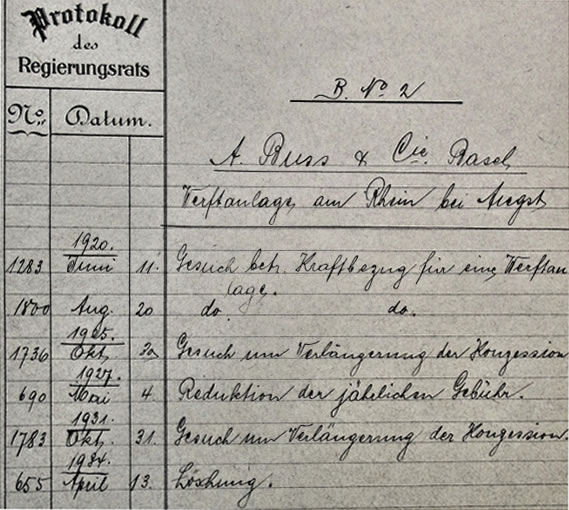 Protokoll
des
Regierungsrats
No. Datum.
B. No. 2
A. Buss & Cie. Basel
Werftanlage am Rhein bei Augst
1920.
1283 Juni 11. Gesuch betr. Kraftbezug für eine Werftan
lage.
1800 Aug. 20 do. do.
1925.
1736 Okt. Gesuch um Verlängerung der Konzession
1927.
690 Mai 4. Reduktion der jährlichen Gebühr.
1931.
1783 Okt. 31. Gesuch um Verlängerung der Konzession.
1934.
655 April 13. Löschung.